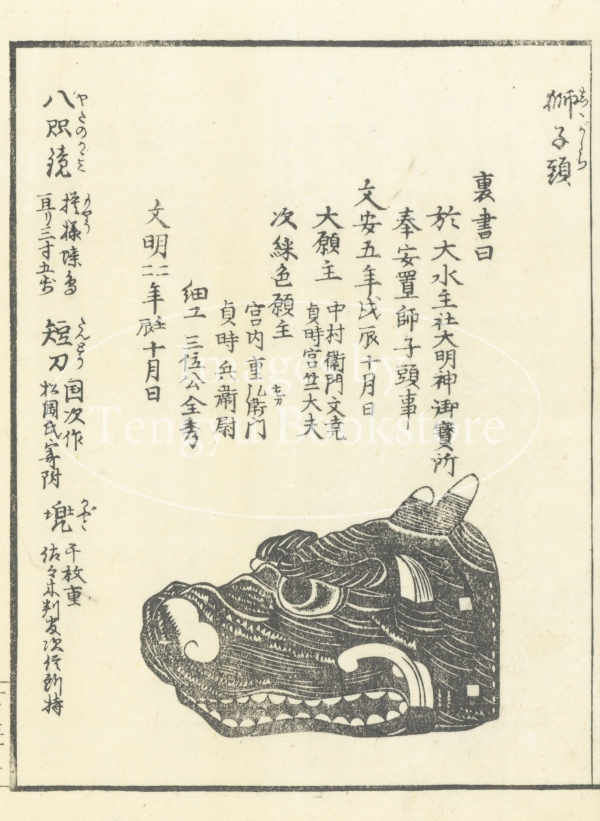 獅子頭
しゝがしら
裏書曰
於大水主社大明神御寳所
奉安置師子頭事
文安五年戊辰十月日
大願主 中村衞門文亮
貞時宮竺大夫
次綵色願主
宮内重弘衛門
貞時兵衛尉
細工 三位公全秀
文明二二年 十月日
八咫鏡
やたのかゞミ
模様
もやう
亘り三寸五分
短刀 国次作
たんとう
松岡氏寄附
かぶと
千枚重
佐々木判官
Image by
Tengyu Bookstore